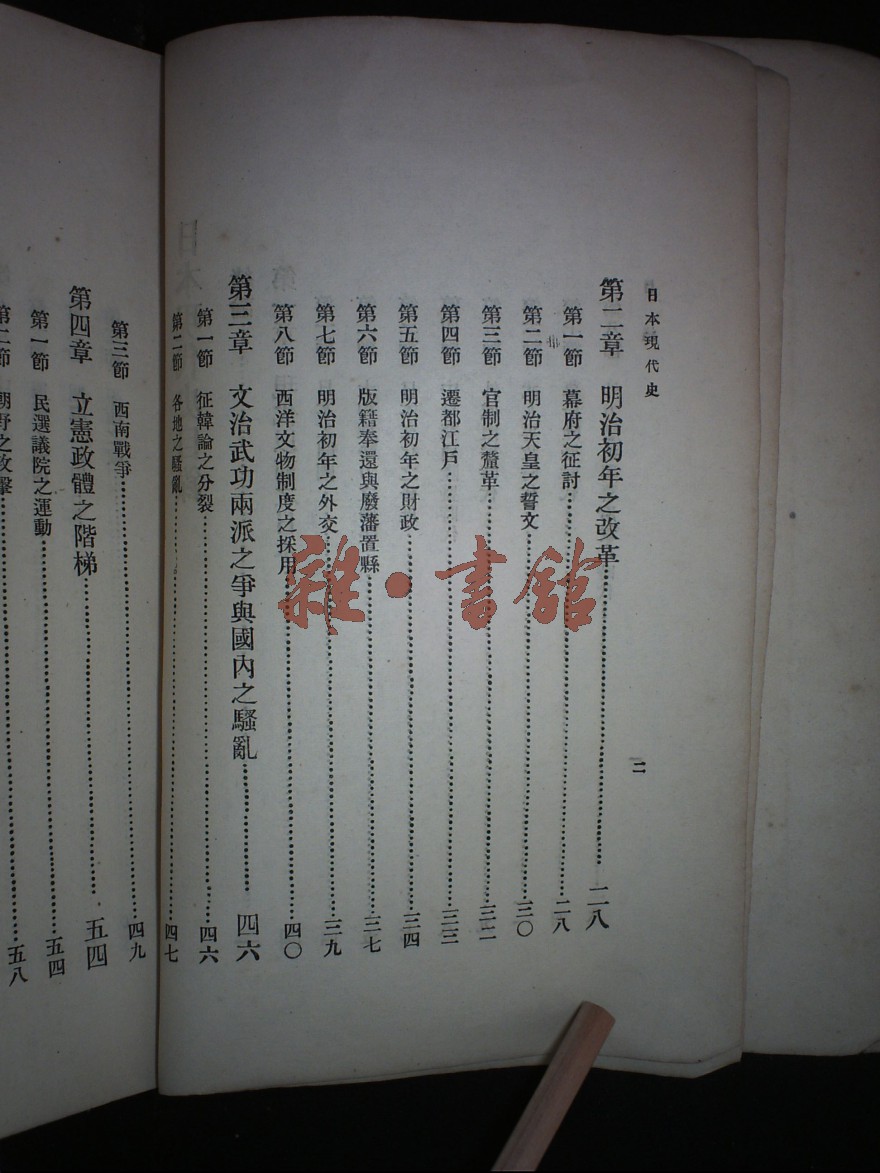 日本現代史
二
第二章 明治初年之改革……二八
第一節 幕府之征討……二八
第二節 明治天皇之誓文……三〇
第三節 官制之釐革……三二
第四節 遷都江戶……三三
第五節 明治初年之財政……三四
第六節 版籍奉還與廢藩置縣……三七
第七節 明治初年之外交……三九
第八節 西洋文物制度之採用……四〇
第三章 文治武功兩派之爭與國內之騷亂……四六
第一節 征韓論之分裂……四六
第二節 各地之騷亂……四七
第三節 西南戰爭……四九
第四章 立憲政體之階梯……五四
第一節 民選議院之運動……五四
第二節 朝野之攻擊……五八
雜·書館